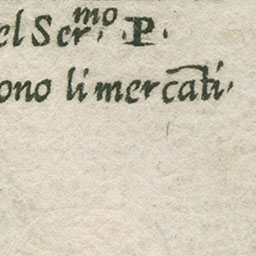 el Ser.mo .P.
ono li mercāti.